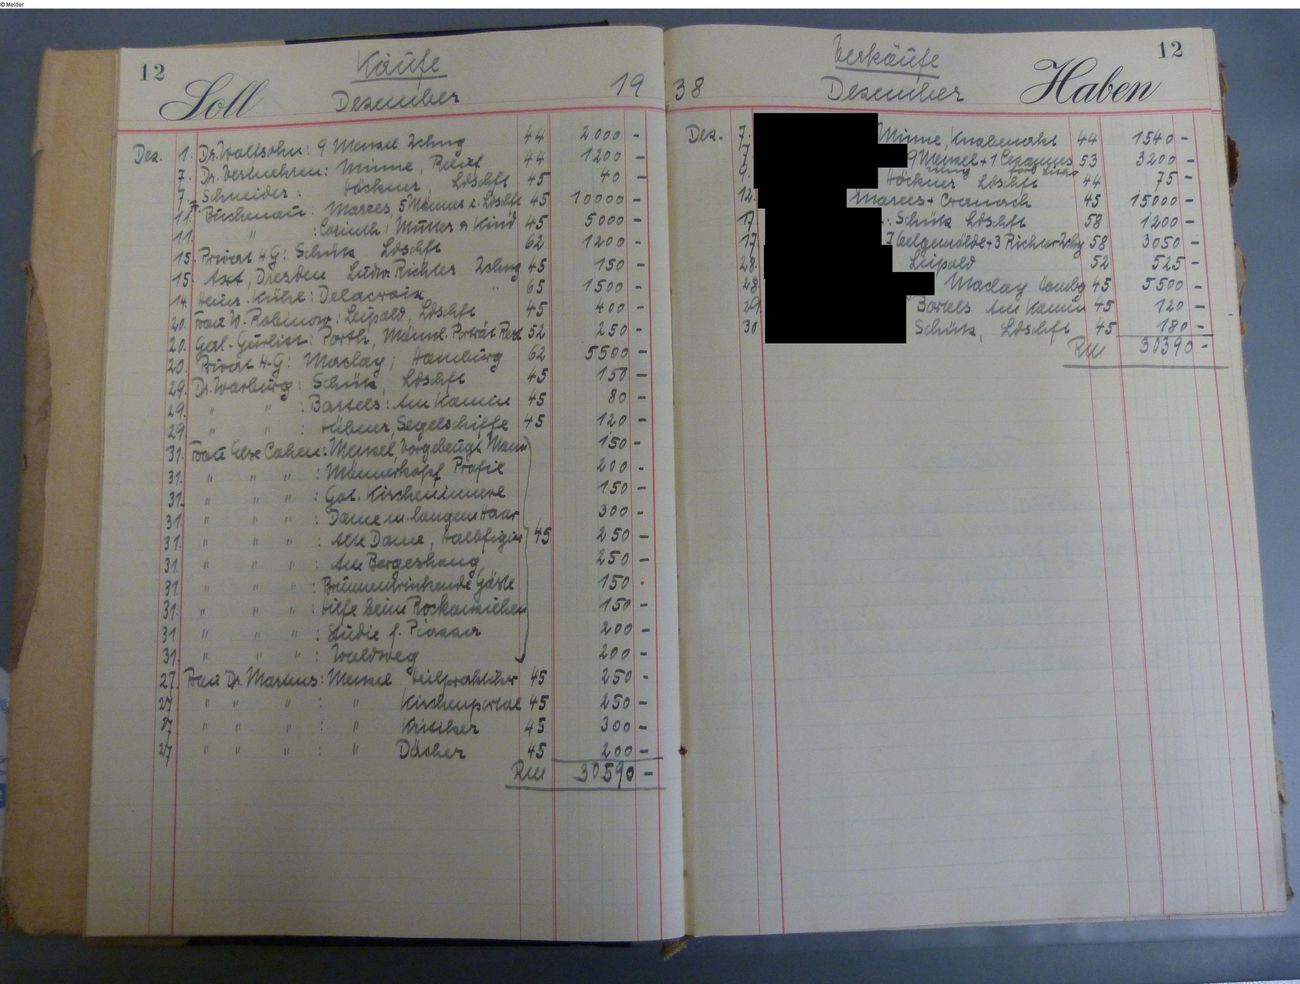 © Melder
12
Käufe
Soll
Dezember
19
Dez. 1. Dr. Wolfsohn: 9 Menzel Zchng 44 2000 -
7. Dr. Vermehren: Minne, Relief 44 1200 -
7. Schneider: Höckner, Ldschft 45 40 -
11. Buchenau: Marees, 5 Männer i. Ldschft 45 10000 -
11. " : Corinth: Mutter u Kind 45 5000 -
15. Privat H-G: Schück Ldschft 62 1200 -
15. Axt, Dresden Ludw. Richter Zchng 45 150 -
14. Heinr. Kühl: Delacroix " 65 1500 -
20. Frau W. Robinow: Leipold, Ldschft 45 400 -
20. Gal. Gurlitt: Porth, Männl. Porträt 52 250 -
20. Privat H-G: Maclay, Hamburg 62 5500 -
29. Dr. Warburg: Schück, Ldschft 45 150 -
29. " " : Bartels: Am Kamin 45 80 -
29. " " : Hübner, Segelschiffe 45 120 -
31. Frau Else Cohen: Menzel, Vorgebeugt Mann 150 -
31. " " " : Männerkopf Profil 200 -
31. " " " : Got. Kircheninnere 150 -
31. " " " : Dame m. langem Haar 300 -
31. " " " : Alte Dame, Halbfigur 45 250 -
31. " " " : Am Bergeshang 250 -
31. " " " : Brunnentrinkende Gäste 150 -
31. " " " : Hilfe beim Rockanziehen 150 -
31 " " " : Studie f. Piazza 200 -
31. " " " : Waldweg 200 -
27. Frau Dr. Martius: Menzel 45 250 -
27 " " " : " Kirchenportal 45 250 -
27 " " " : " Kritiker 45 300 -
27 " " " : " Dächer 45 200 -
RM 30590 -
12
Verkäufe
38
Dezember
Haben
Dez. 7. Minne, Knabenakt 44 1540 -
7. 9 Menzel + 1 Cezannes 53 3200 -
9. Höckner Ldschft 44 75 -
12. Marees + Cranach 45 15000 -
17. Schück Ldschft 58 1200 -
17. 7 Oelgemälde + 3 Richter Zchg 58 3050 -
28. Leipold 52 525 -
28. Maclay Hambg 45 5500 -
29. Bartels Am Kamin 45 120 -
30 Schück, Ldschft 45 180 -
RM 30390 -